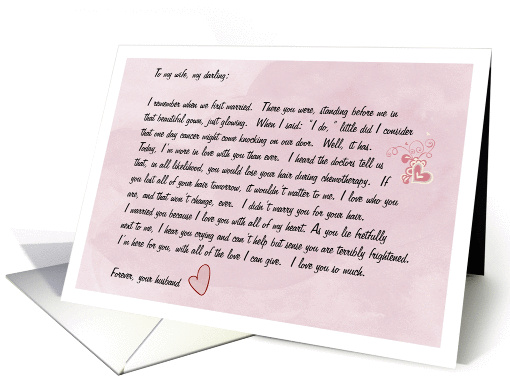 To my wife, my darling:
I remember when we first married. There you were, standing before me in
that beautiful gown, just glowing. When I said: "I do," little did I consider
that one day cancer might come knocking on our door. Well, it has.
Today, I'm more in love with you than ever. I heard the doctors tell us
that, in all likelihood, you would lose your hair during chemotherapy. If
you lost all of your hair tomorrow, it wouldn't matter to me. I love who you
are, and that won't change, ever. I didn't marry you for your hair.
I married you because I love you with all of my heart. As you lie fretfully
next to me, I hear you crying and can't help but sense you are terribly frightened.
I'm here for you, with all of the love I can give. I love you so much.
Forever, your husband